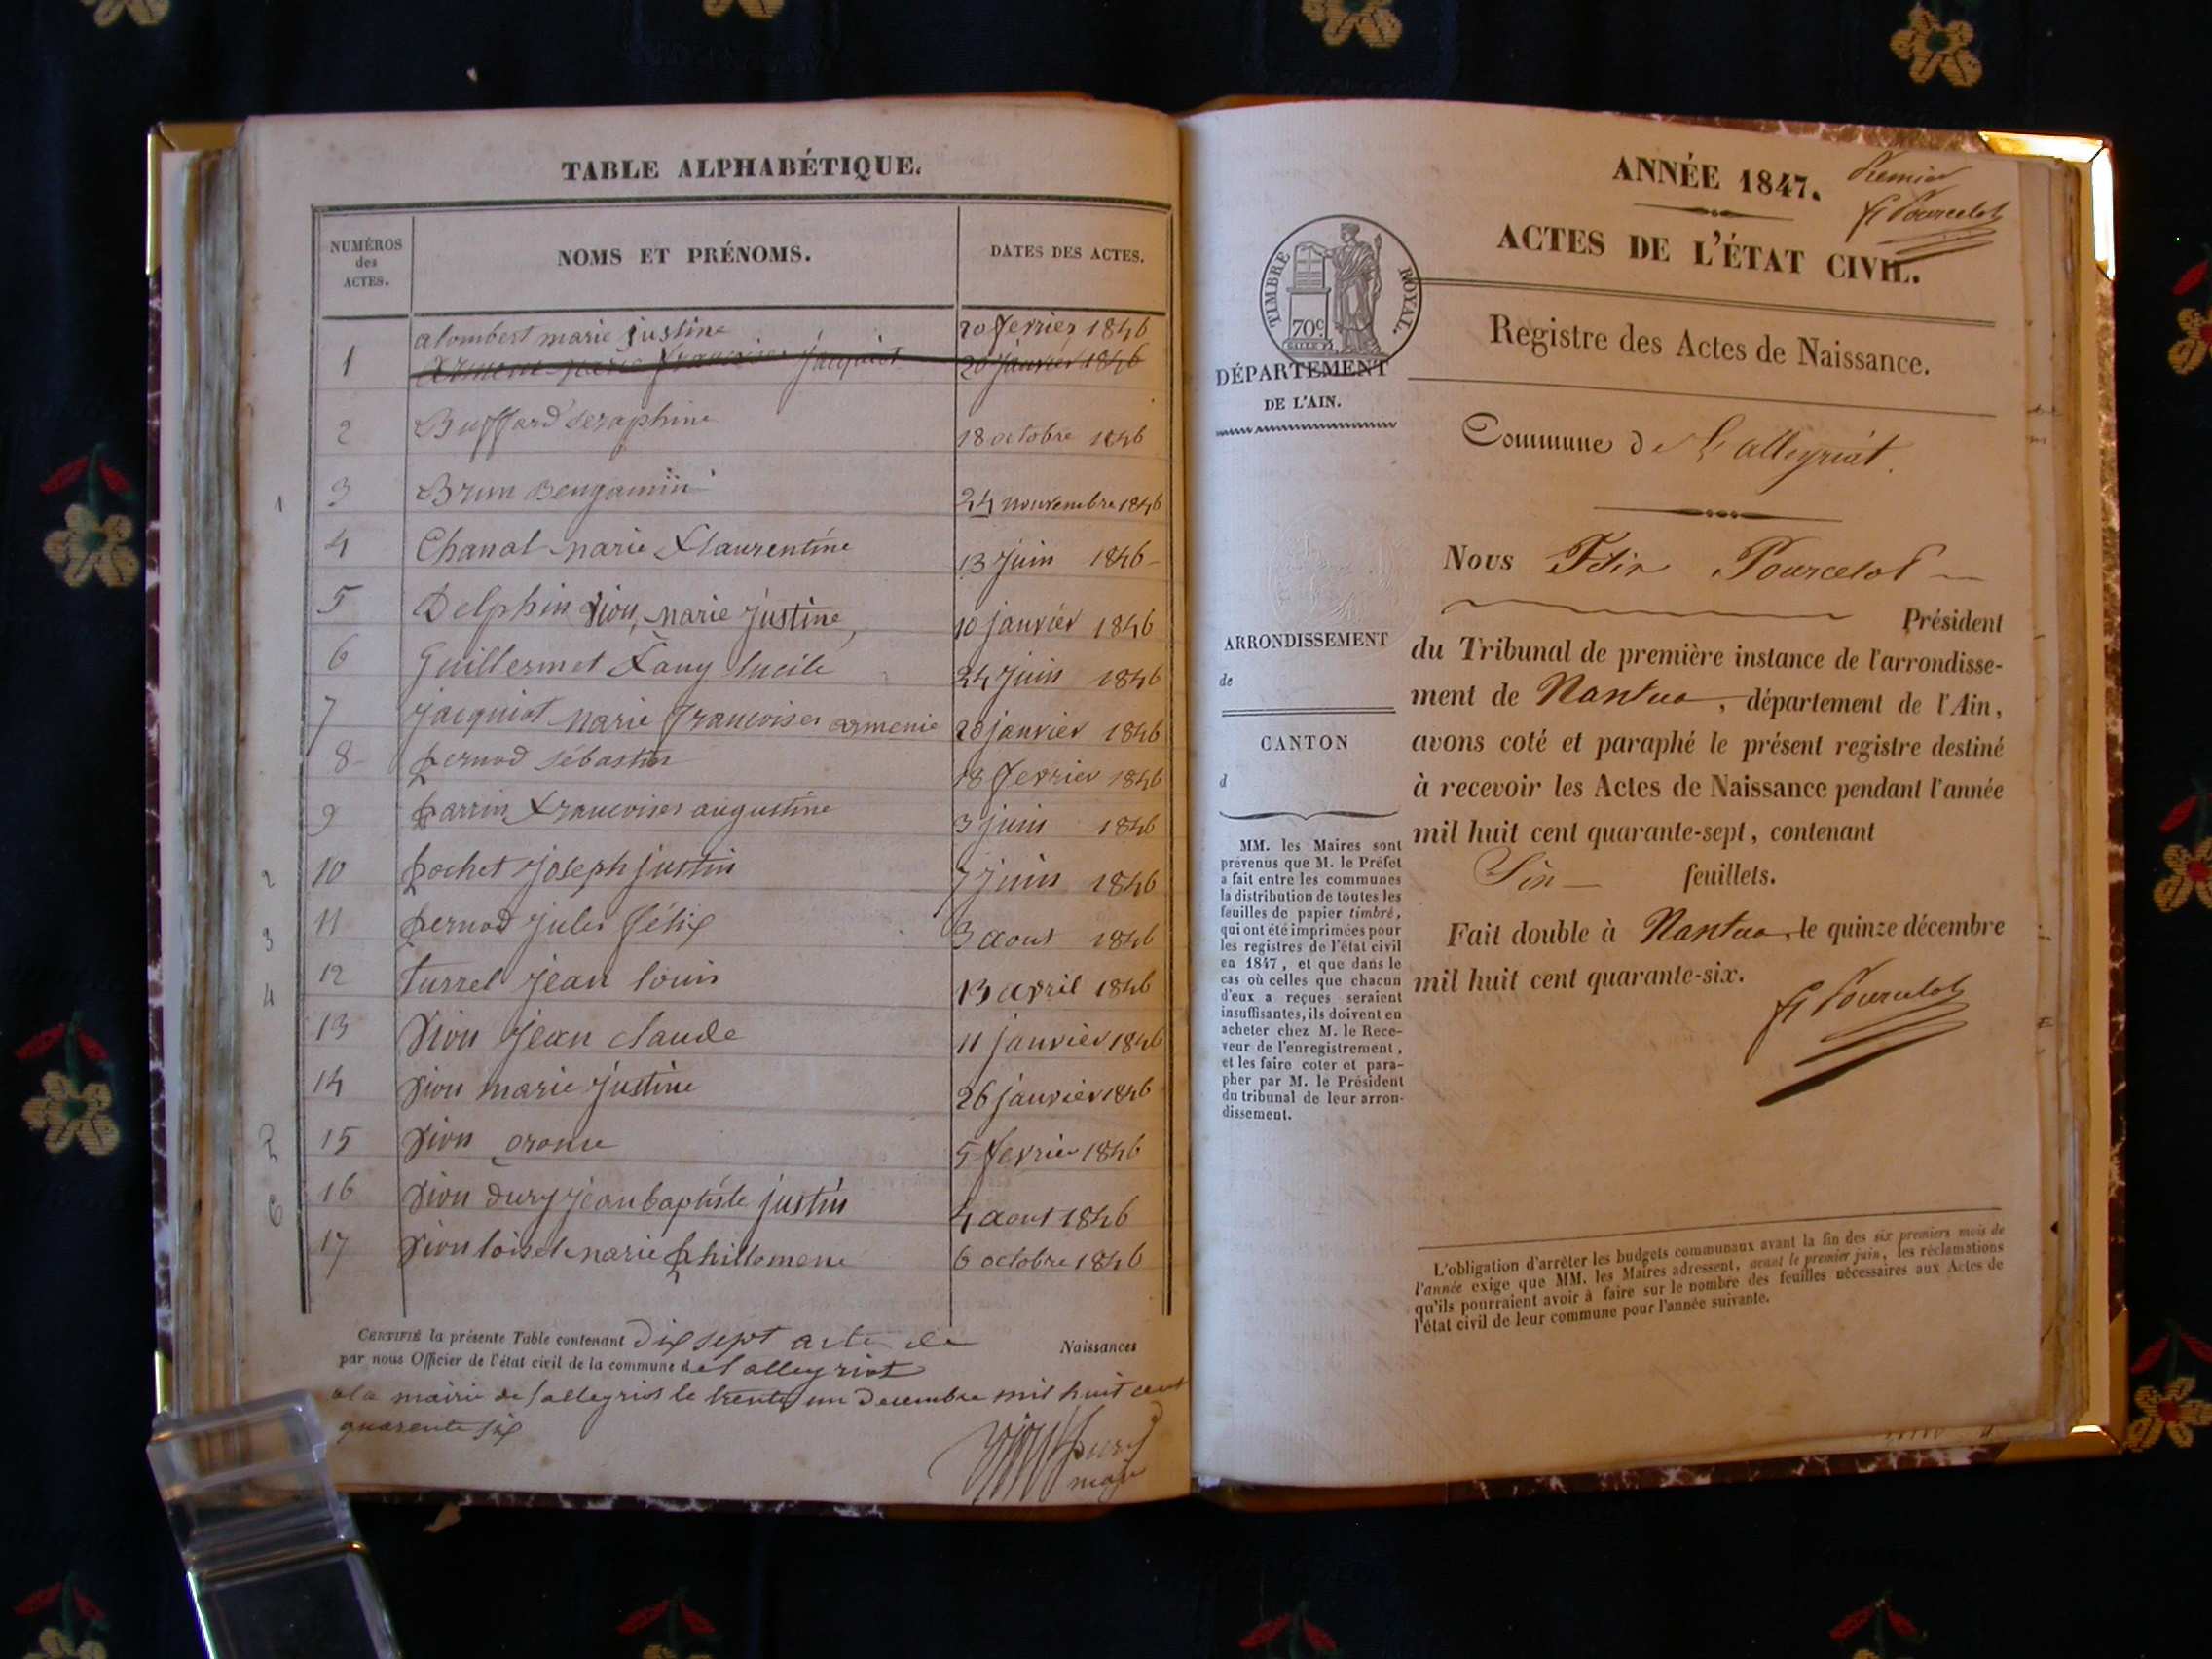 TABLE ALPHABÉTIQUE.
NUMÉROS
des
ACTES.
NOMS ET PRÉNOMS.
DATES DES ACTES.
alombert marie justine 20 fevrier 1846
1 jacquiot 20 janvier 1846
2 Buffard seraphine 18 octobre 1846
1 3 Brun Bengamin 24 nouvembre 1846
4 Chanal marie flaurentine 13 juin 1846
5 Delphin Vion, marie justine, 10 janvier 1846
6 Guillermet fany lucile 24 juin 1846
7 jacquiot marie francoises armenie 20 janvier 1846
8 pernod sébastin 18 fevrier 1846
9 parrin francoises augustine 3 juin 1846
2 10 pochet joseph justin 7 juin 1846
3 11 pernod jules félix 3 aout 1846
4 12 turrel jean louis 13 avril 1846
13 Vion jean claude 11 janvier 1846
14 Vion marie justine 26 janvier 1846
5 15 Vion 5 fevrier 1846
6 16 Vion dury jean baptiste justin 4 aout 1846
17 Vion loiset marie phillomene 6 octobre 1846
CERTIFIÉ la présente Table contenant dix sept acte de Naissances
par nous Officier de l'état civil de la commune de S alleyriat
a la mairie de S alleyriat le trente un decembre mil huit cent
quarente six
maire
ANNÉE 1847.
Premier
F Pourcelot
ACTES DE L'ÉTAT CIVIL.
TIMBRE ROYAL.
70c
DÉPARTEMENT
DE L'AIN.
Registre des Actes de Naissance.
Commune de S alleyriat.
ARRONDISSEMENT
de
CANTON
d
MM. les Maires sont
prévenus que M. le Préfet
a fait entre les communes
la distribution de toutes les
feuilles de papier timbré,
qui ont été imprimées pour
les registres de l'état civil
en 1847, et que dans le
cas où celles que chacun
d'eux a reçues seraient
insuffisantes, ils doivent en
acheter chez M. le Rece-
veur de l'enregistrement,
et les faire coter et para-
pher par M. le Président
du tribunal de leur arron-
dissement.
Nous Pourcelot
Président
du Tribunal de première instance de l'arrondisse-
ment de Nantua, département de l'Ain,
avons coté et paraphé le présent registre destiné
à recevoir les Actes de Naissance pendant l'année
mil huit cent quarante-sept, contenant
Six feuillets.
Fait double à Nantua, le quinze décembre
mil huit cent quarante-six.
F Pourcelot
L'obligation d'arrêter les budgets communaux avant la fin des six premiers mois de
l'année exige que MM. les Maires adressent, avant le premier juin, les réclamations
qu'ils pourraient avoir à faire sur le nombre des feuilles nécessaires aux Actes de
l'état civil de leur commune pour l'année suivante.